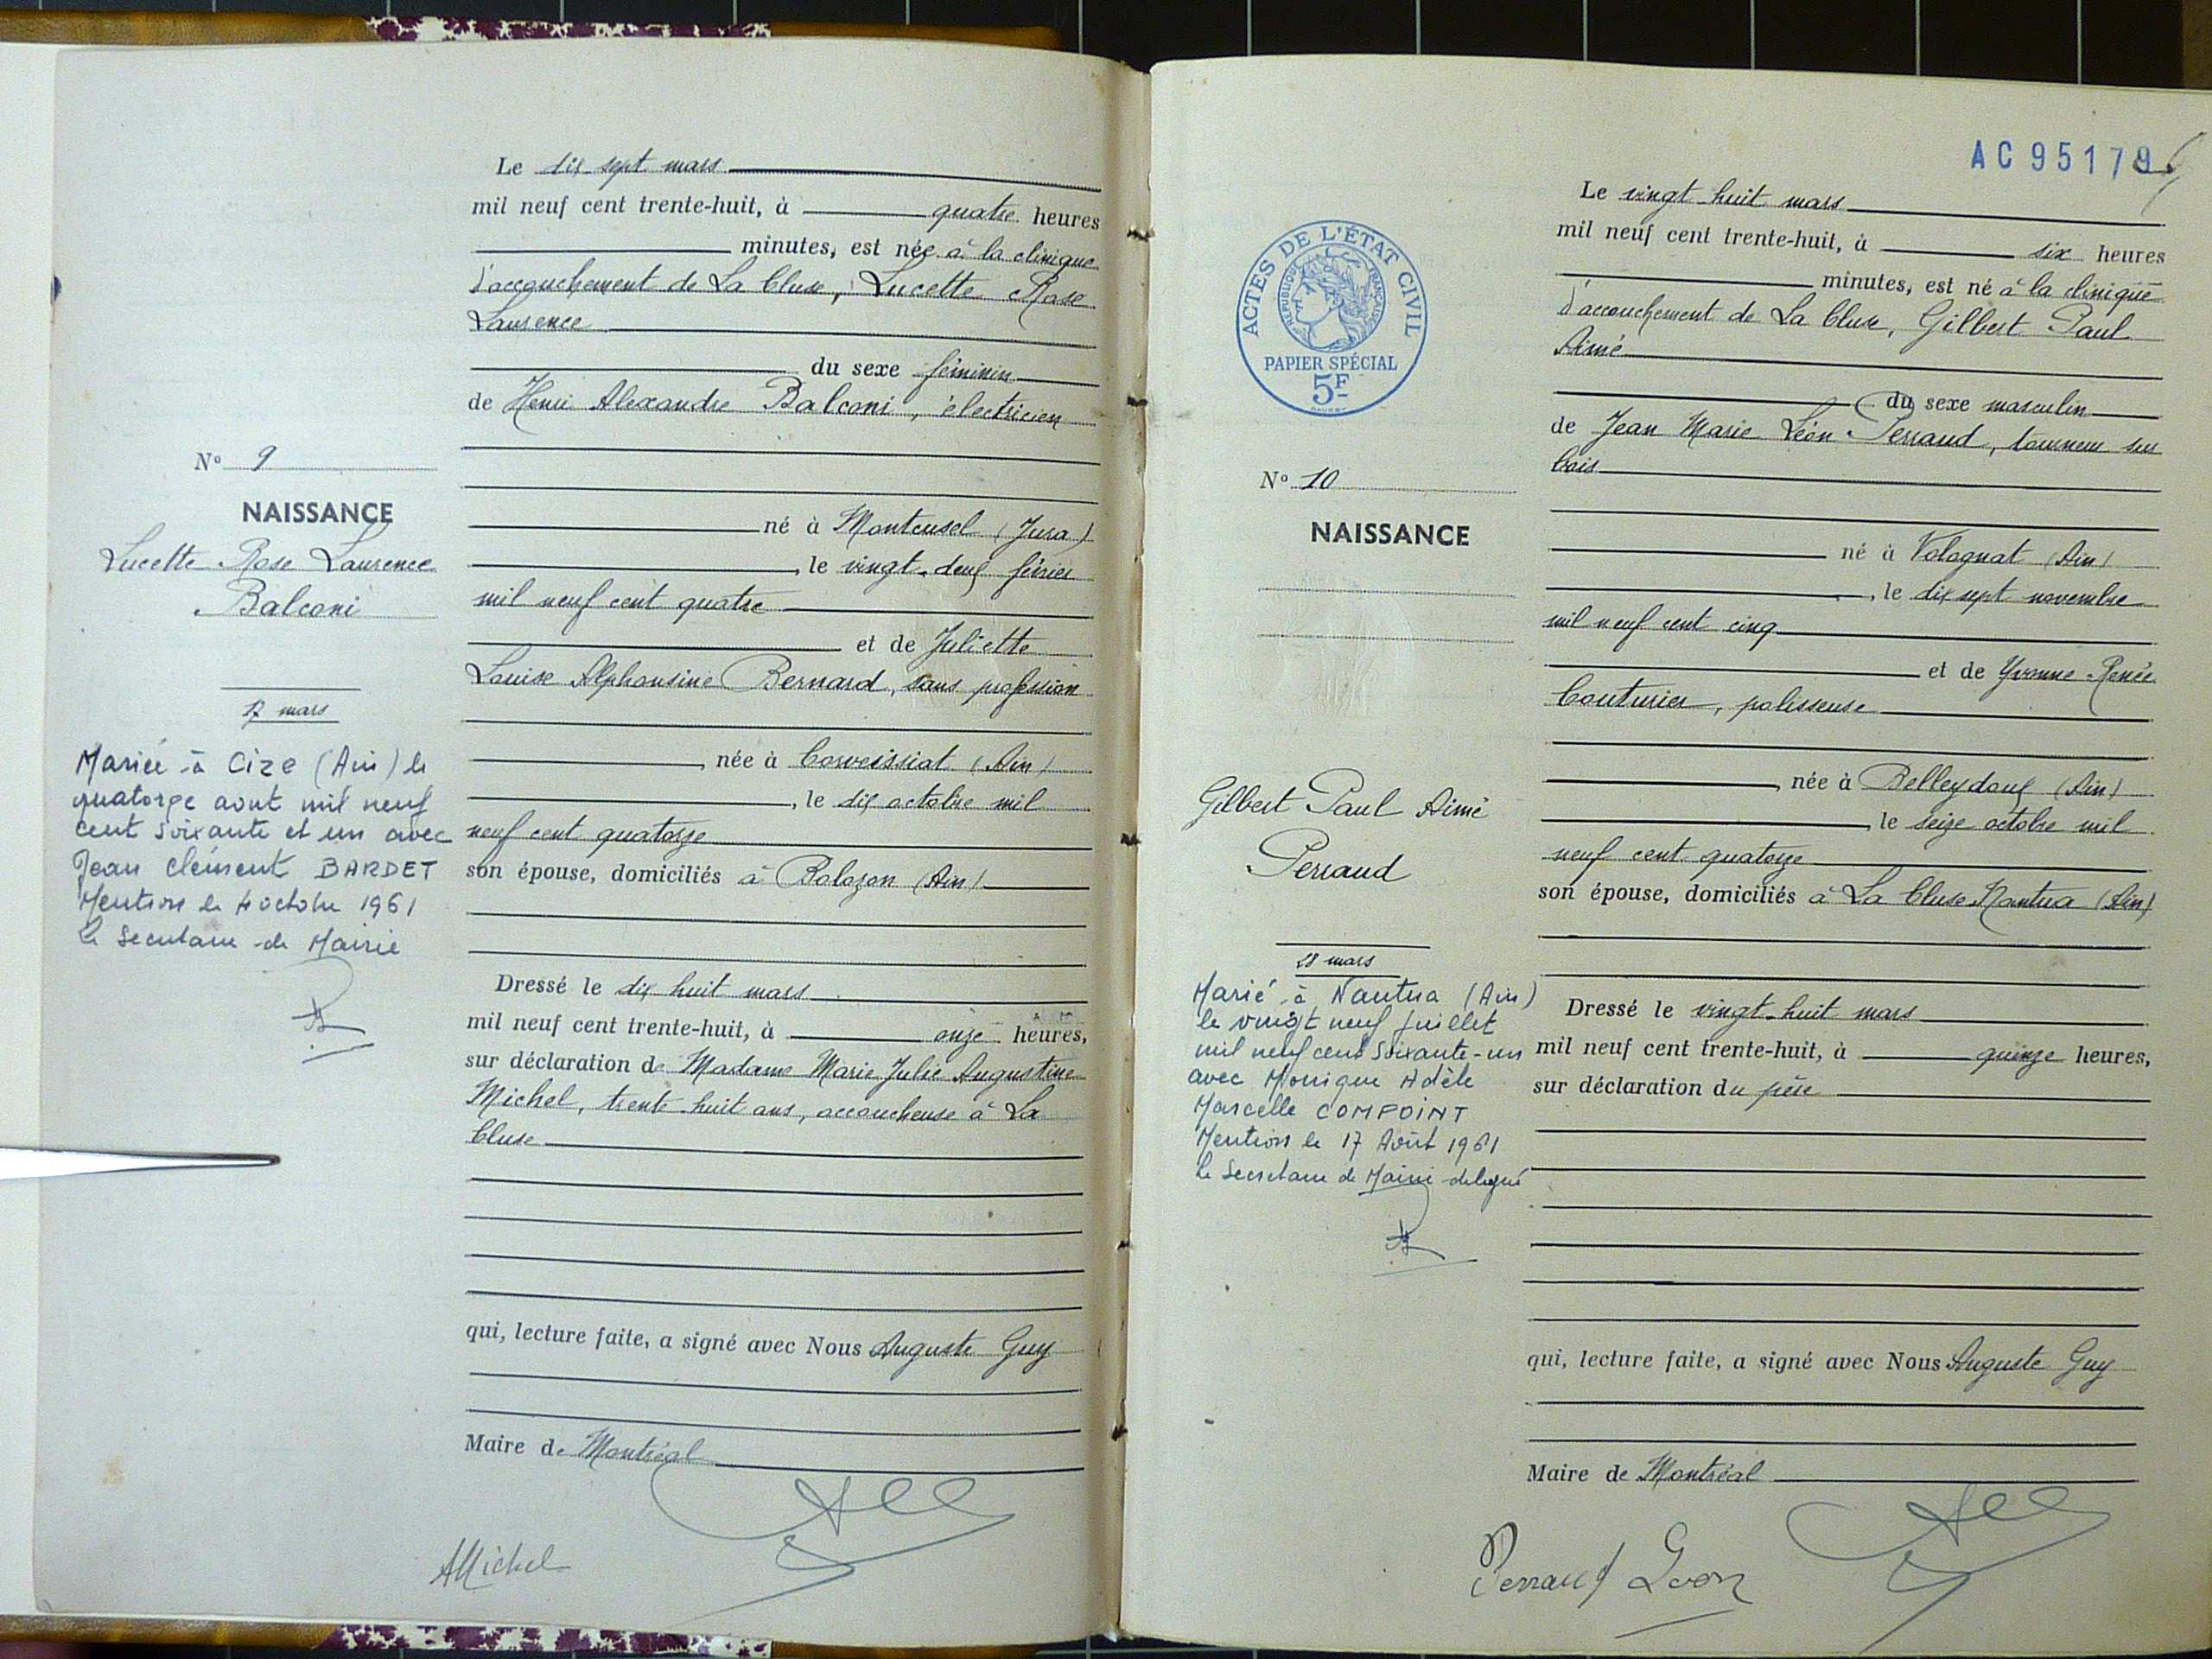 Le dix sept mars
mil neuf cent trente-huit, à quatre heures
minutes, est née à la clinique
d'accouchement de La Cluse, Lucette Rose
Laurence
du sexe féminin
de Henri Alexandre Balconi, électricien
né à Montcusel (Jura)
, le vingt-deux février
mil neuf cent quatre
et de Juliette
Louise Alphonsine Bernard, sans profession
, née à Corveissiat (Ain)
, le dix octobre mil
neuf cent quatorze
son épouse, domiciliés à Bolozon (Ain)
Dressé le dix huit mars
mil neuf cent trente-huit, à onze heures,
sur déclaration de Madame Marie Julie Augustine
Michel, trente huit ans, accoucheuse à La
Cluse
qui, lecture faite, a signé avec Nous Auguste Guy
Maire de Montréal
AMichel
N° 9
NAISSANCE
Lucette Rose Laurence
Balconi
17 mars
Mariée à Cize (Ain) le
quatorze aout mil neuf
cent soixante et un avec
Jean Clément BARDET
Mention le 4 octobre 1961
Le Secretaire de Mairie
AC 95179
Le vingt huit mars
mil neuf cent trente-huit, à six heures
minutes, est né à la clinique
d'accouchement de La Cluse, Gilbert Paul
Aimé
du sexe masculin
de Jean Marie Léon Perraud, tourneur sur
bois
né à Volognat (Ain)
, le dix sept novembre
mil neuf cent cinq
et de Yvonne Renée
Couturier, polisseuse
, née à Belleydoux (Ain)
, le seize octobre mil
neuf cent quatorze
son épouse, domiciliés à La Cluse Nantua (Ain)
Dressé le vingt-huit mars
mil neuf cent trente-huit, à quinze heures,
sur déclaration du père
qui, lecture faite, a signé avec Nous Auguste Guy
Maire de Montréal
Perraud Léon
ACTES DE L'ÉTAT CIVIL
RÉPUBLIQUE FRANÇAISE
PAPIER SPÉCIAL
5F
N° 10
NAISSANCE
Gilbert Paul Aimé
Perraud
28 mars
Marié à Nantua (Ain)
le vingt neuf juillet
mil neuf cent soixante-un
avec Monique Adèle
Marcelle COMPOINT
Mention le 17 Août 1961
Le Secretaire de Mairie délégué